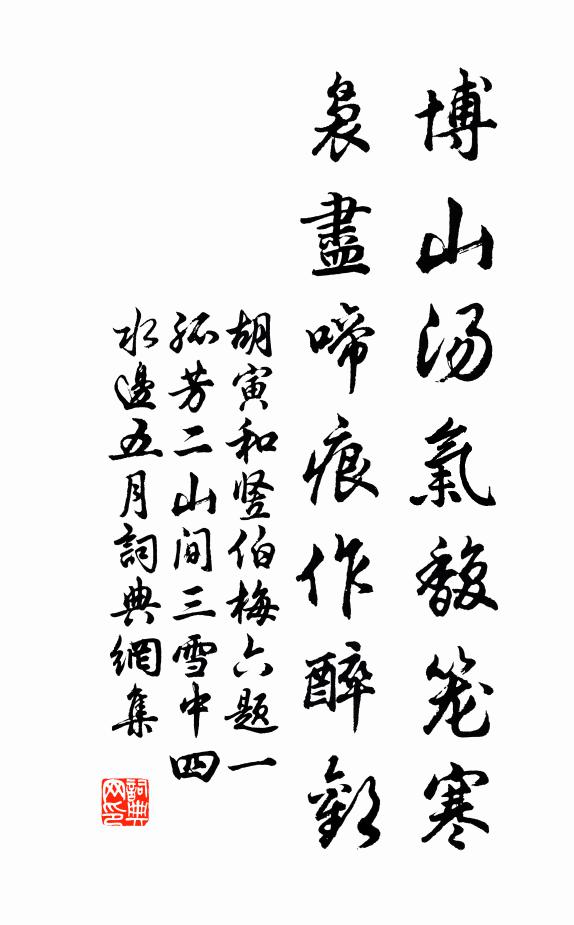 博山汤氣馥笼寒
裊盡啼痕作醉歡
胡寅和竖伯梅六题一
孤芳二山间三雪中四
水邊五月詞典網集
詞典网印